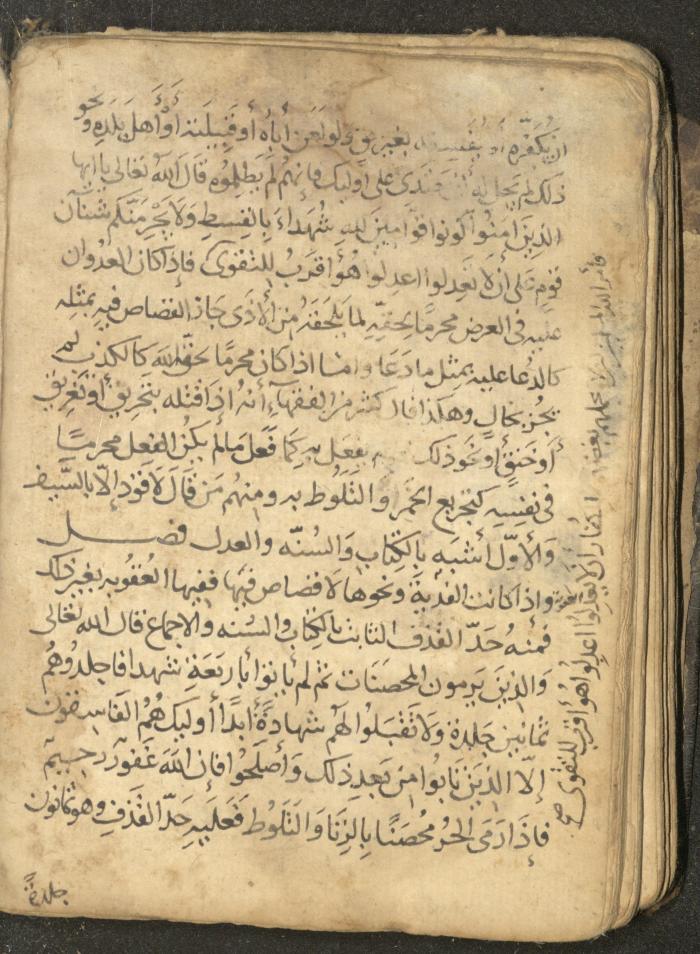 ان يكفره او يفسقه بغير حق ولو لعن أباه أو قبيلته أو أهل بلده ونحو
ذلك لم يحل له أن يتعدى على أوليك فانهم لم يظلموه قال الله تعالى يا ايها
الذين امنوا كونوا قوامين لله شهداء بالقسط ولا يجرمنكم شنآن
قوم على أن لا تعدلوا اعدلوا هو أقرب للتقوى فإذا كان العدوان
عليه في العرض محرما بحقه لما يلحقه من الأذى جاز القصاص فيه بمثله
كالدعا عليه بمثل ما دعا واما اذا كان محرما بحق الله كالكذب لم
يجز بحال وهكذا قال كثير من الفقهاء أنه اذا قتله بتحريق أو تغريق
أو خنق أو نحو ذلك يفعل به كما فعل ما لم يكن الفعل محرما
في نفسه كتجريع الخمر والتلوط به ومنهم من قال لا قود إلا بالسيف
والأول أشبه بالكتاب والسنه والعدل فصل
واذا كانت الفرية ونحوها لا قصاص فيها ففيها العقوبه بغير ذلك
فمنه حد القذف الثابت بالكتاب والسنه والاجماع قال الله تعالى
والذين يرمون المحصنات ثم لم يأتوا بأربعة شهدا فاجلدوهم
ثمانين جلدة ولا تقبلوا لهم شهادة أبدا أوليك هم الفاسقون
إلا الذين تابوا من بعد ذلك وأصلحوا فإن الله غفور رحيم
فإذا رمى الحر محصنا بالزنا والتلوط فعليه حد القذف وهو ثمانون
جلدة
فأمر الله المسلمين بغضهم الكفار أن لا يعدلوا اعدلوا هو أقرب للتقوى صح